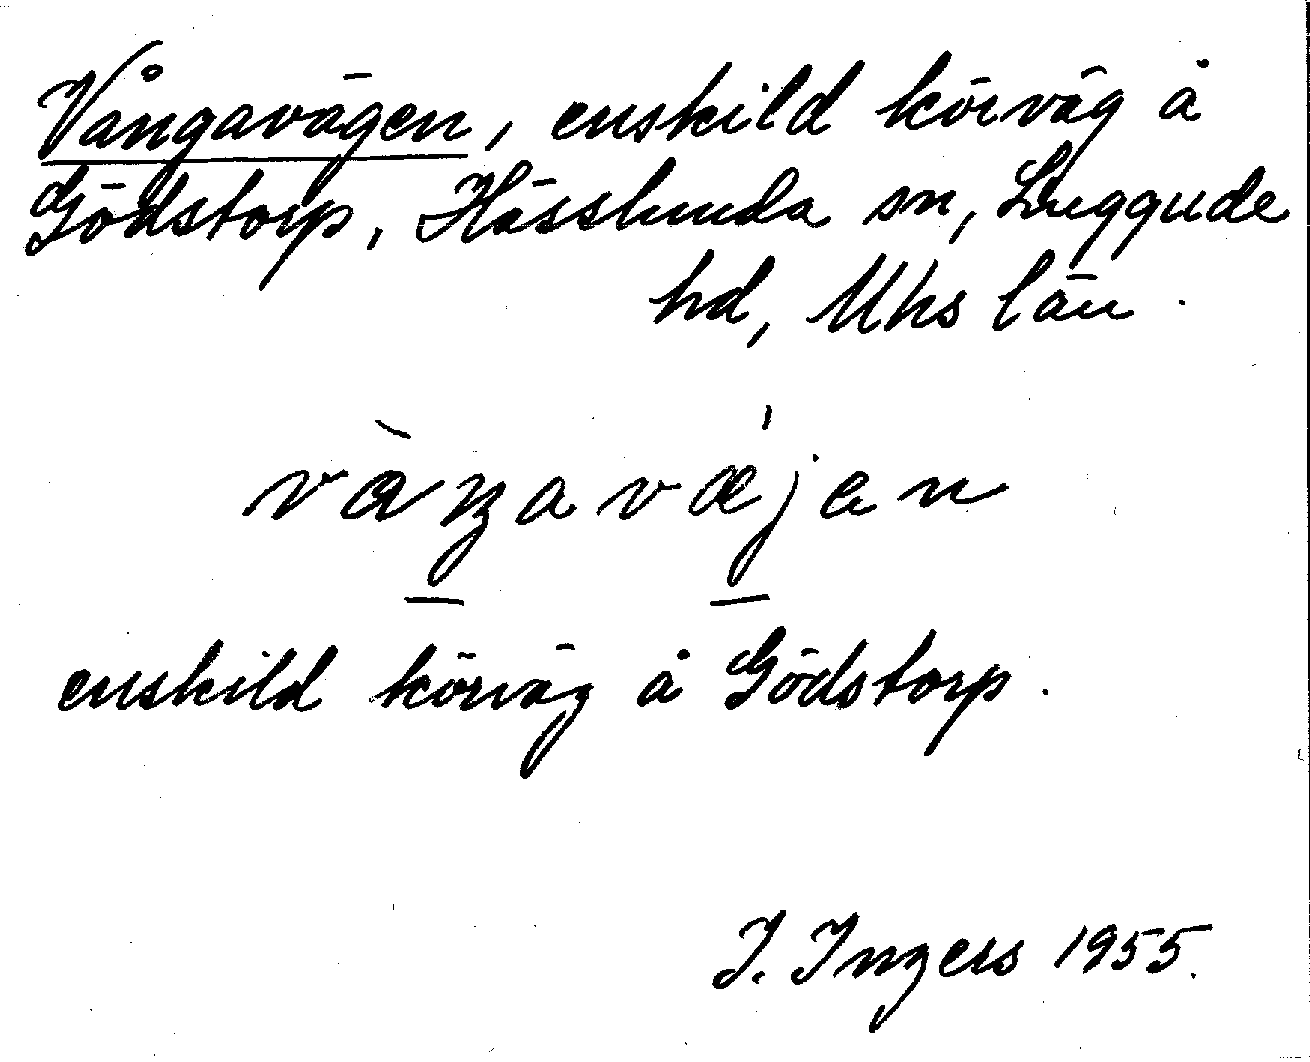 Vångavägen, enskild körväg å
Gödstorp, Hässlunda sn, Luggude
hd, Mhs län.
vàŋavæ̀jen
enskild körväg å Gödstorp.
I. Ingers 1955.